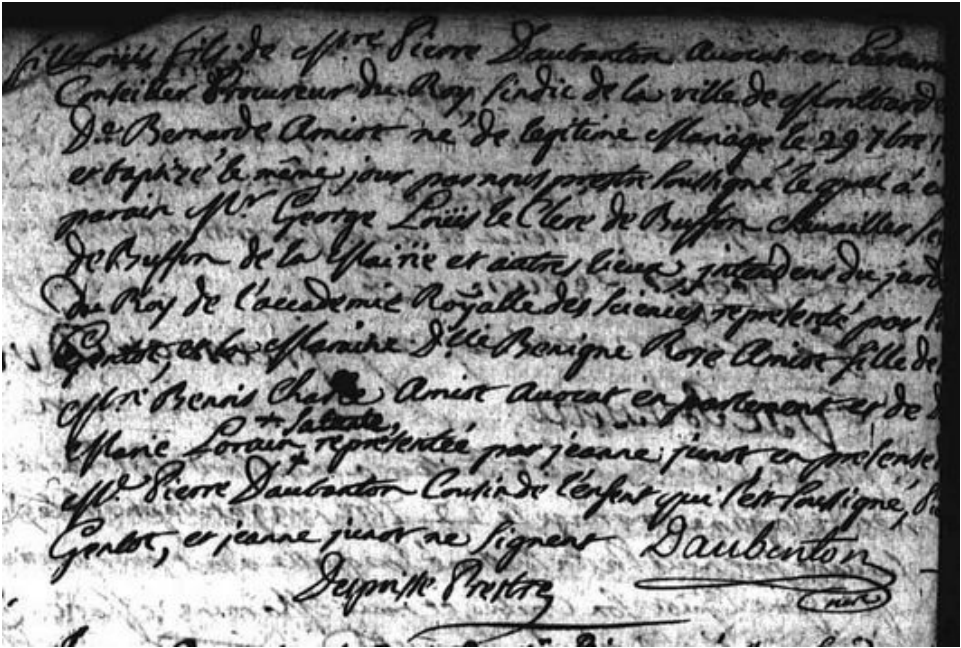 Loüis fils de Mtre Pierre Daubanton avocat en
Conseiller Procureur du Roy sindic de la ville de Montbard
De Bernarde Amiot né de legitime Mariage le 29 7bre
et baptizé le même jour par nous prestre soussigné le quel à
parain Mr George Loüis le Clerc de Buffon chevailler
de Buffon de la Mairie et autres lieux, intendens du jard
du Roy de l'accademie Royalle des sciences representé par
Gentot, et la Maraine Dlle Benigne Rose Amiot fille de
Mtre Benois Charle Amiot avocat en parlement et de
+ satente,
Marie Lorain representée par jeanne junot en presense
Mr Pierre Daubanton Cousin de l'enfent qui s'est soussigné,
Gentot, et jeanne junot ne signent Daubenton
Prestre